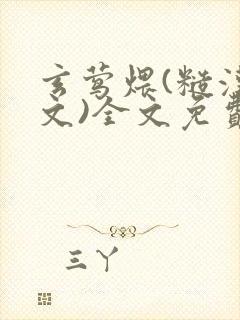 玄莺煨(糙汉
文)全文免费
三丫